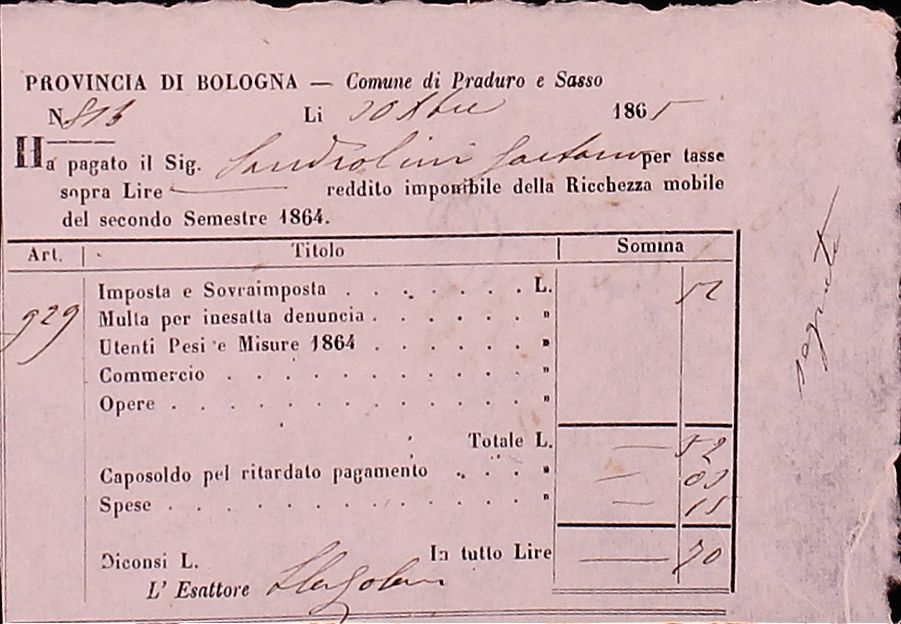 PROVINCIA DI BOLOGNA — Comune di Praduro e Sasso
N. 813 Li 20 Xbre 1865
Ha pagato il Sig. Sandrolini Gaetano per tasse
sopra Lire — reddito imponibile della Ricchezza mobile
del secondo Semestre 1864.
Art. Titolo Somma
Imposta e Sovraimposta . . . . . . . L. 52
929 Multa per inesatta denuncia . . . . . . "
Utenti Pesi e Misure 1864 . . . . . . "
Commercio . . . . . . . . . . . "
Opere . . . . . . . . . . . . . "
Totale L. — 52
Caposoldo pel ritardato pagamento . . . " — 03
Spese . . . . . . . . . . . . . " — 15
Diconsi L. In tutto Lire — 70
L' Esattore